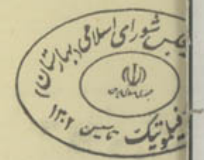 مجلس شورای اسلامی (بهارستان)
جمهوری اسلامی ایران
فیلاتلیک تاسیس ۱۳۰۲